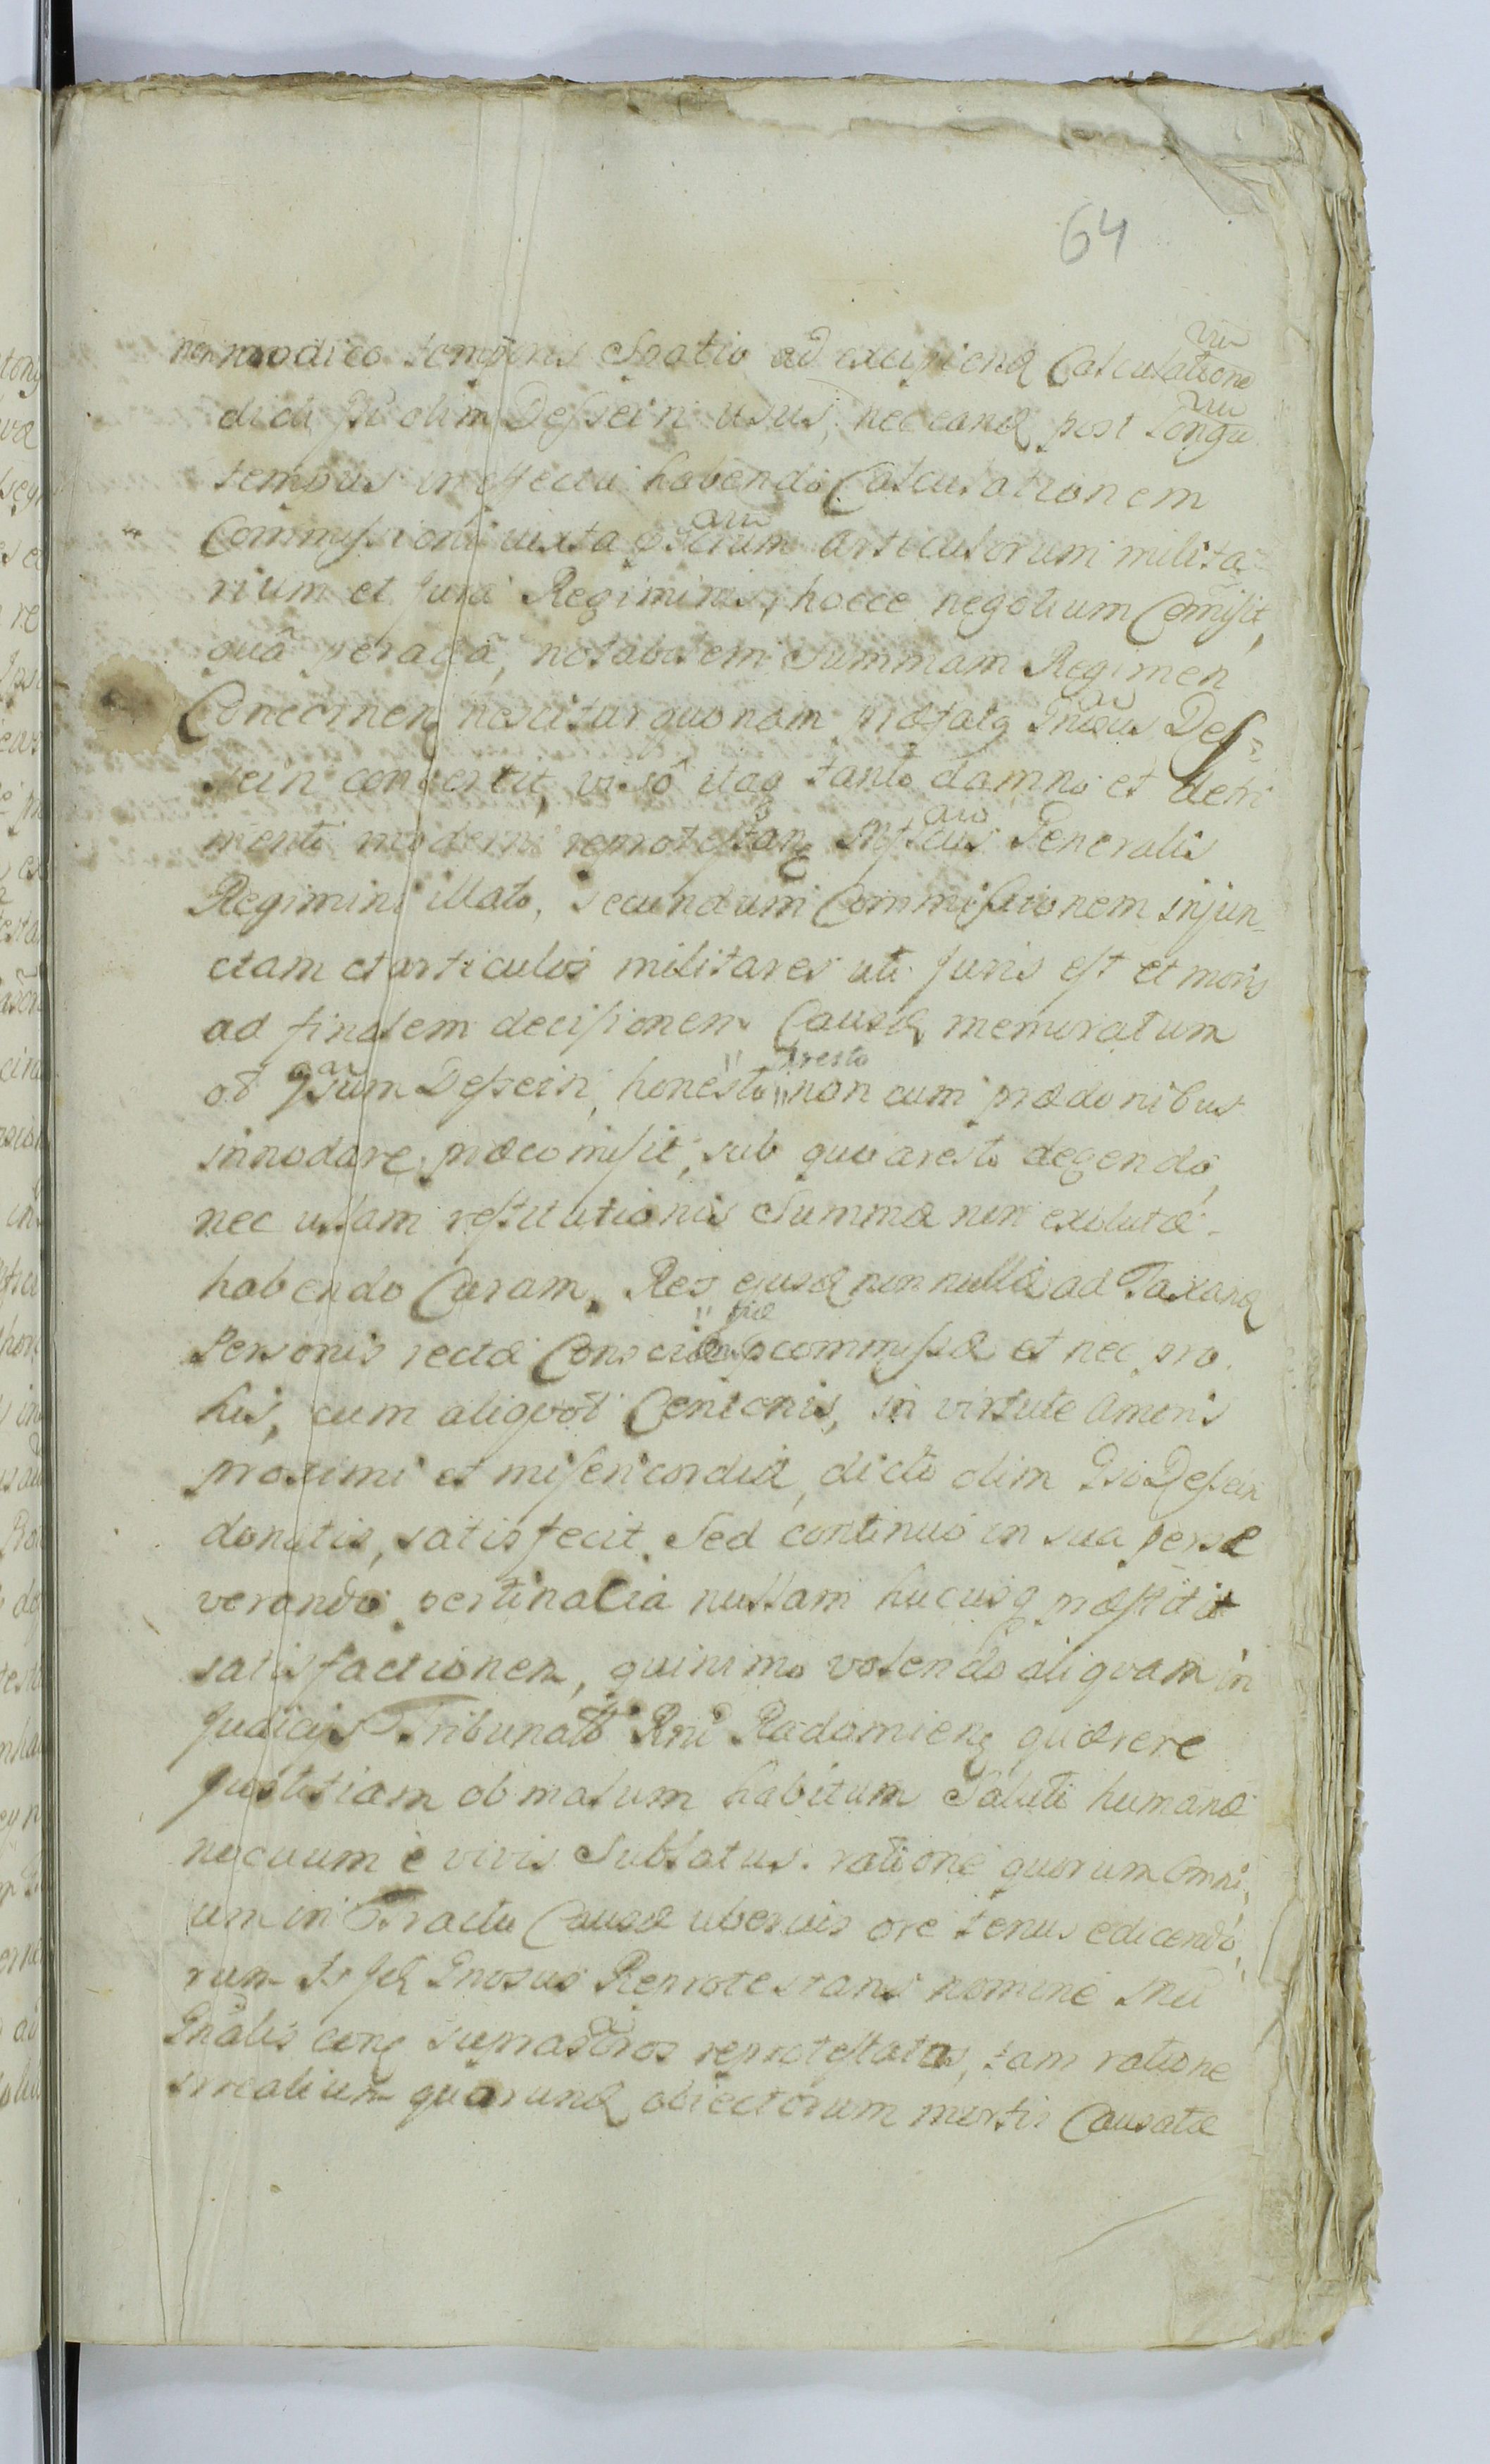 64
non modico temporis Spatio ad excipiend Calculatione
dicti olim Dessein usus, nec eand post Longu
tempus in effectu habendo Calculationem
Commissioni iuxta articulorum milita=
rium et Jura Regiminis, hocce negotium Comisit,
quâ peractâ, notabilem Summam Regimen
Concernen nescitur quonam præfatq Gnosus Des=
sein convertit, viso itaq tanto damno et detri
menti moderni reprotestan Generalis
Regimini illato, secundum Commissionem injun
ctam et articulos militares uti Juris est et moris
ad finalem decisionem Causæ memoratum
ol Gsum Dessein, honesto "Aresto" non cum prædonibus
innodare præcomisit, sub quo aresto degendo,
nec ullam restitutionis Summæ non exolutæ
habendo Curam, Res ejusd nonnullæ ad Taxand
Personis rectæ commissæ et nec pro
his, cum aliquot Centenis, in virtute Amoris
proximi et misericordiæ, dicto olim Gso Dessein
donatis, satisfecit. Sed continuo in sua perse
verando pertinacia nullam hucusq præstitit
satisfactionem, quinimo volendo aliquam in
Judicijs Tribunalis Rni Radomien quærere
Justitiam ob malum habitum Saluti humanæ
nocuum è vivis Sublatus. ratione quorum Omni,
um in Tractu Causæ uberius ore tenus edicendo,
rum Gnosus Reprotestans nomine
Gnalis con reprotestatus, tam ratione
præalium quorund obiectorum mortis Causatæ